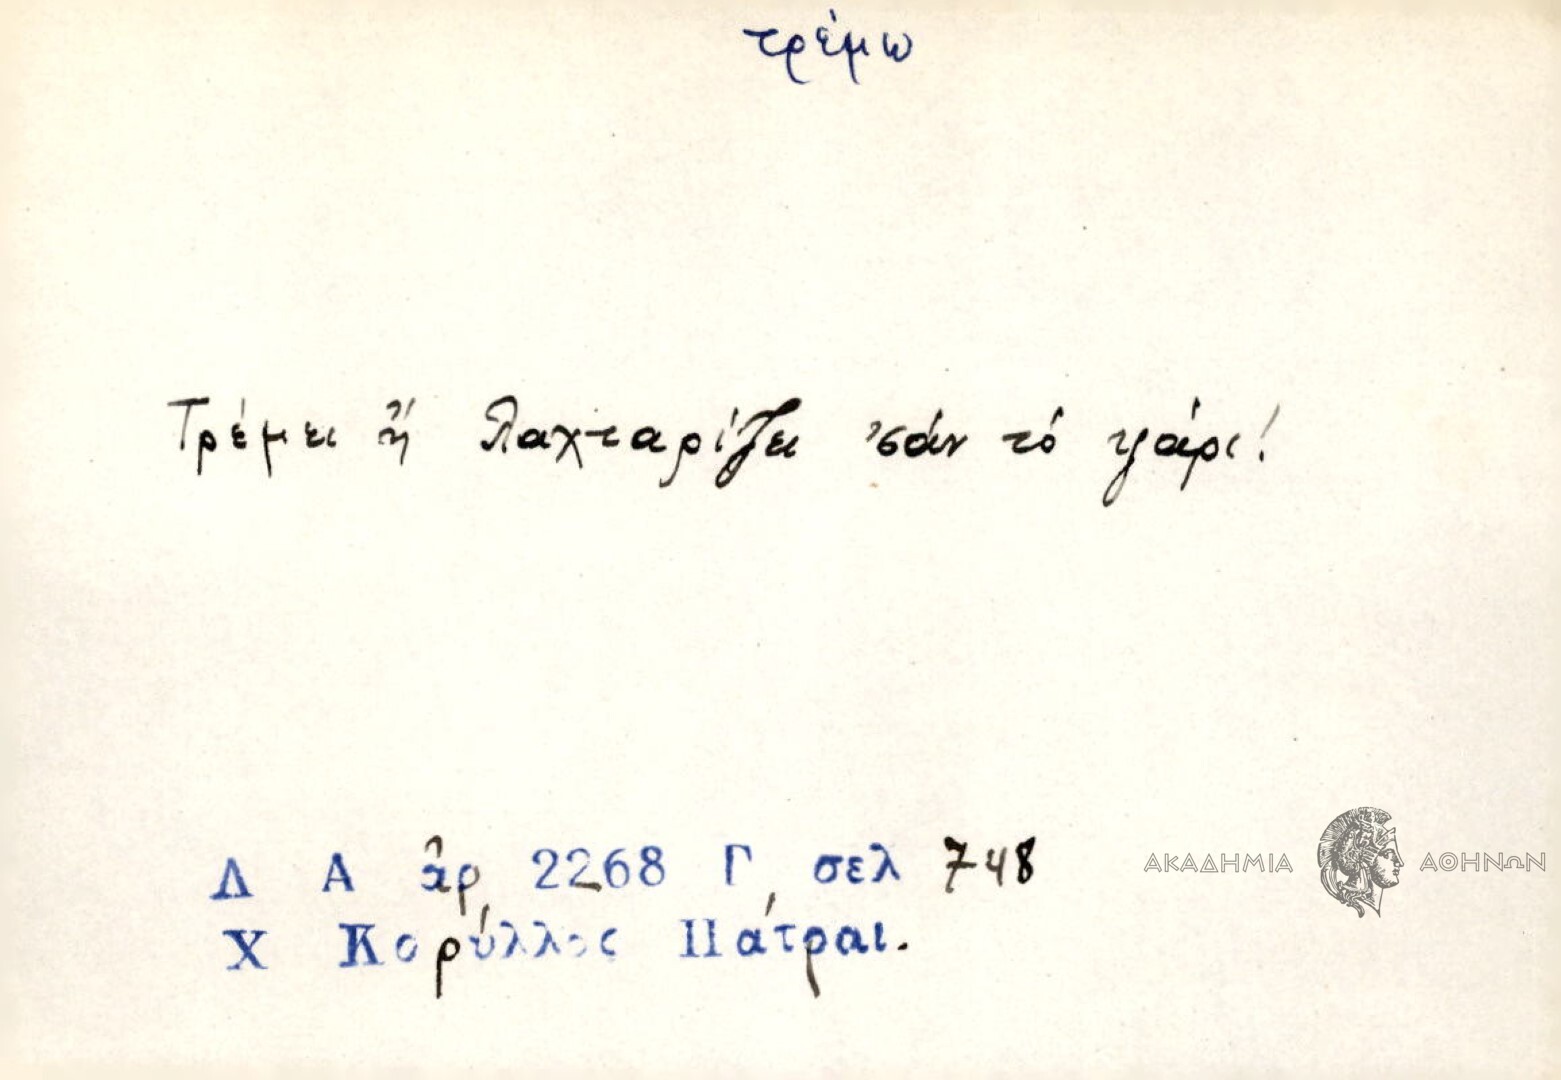 τρέμω
Τρέμει ἤ λαχταρίζει 'σάν τό ψάρι!
Λ Α ἀρ 2268 Γ, σελ 748
Χ Κορύλλος Πάτραι.
ΑΚΑΔΗΜΙΑ ΑΘΗΝΩΝ